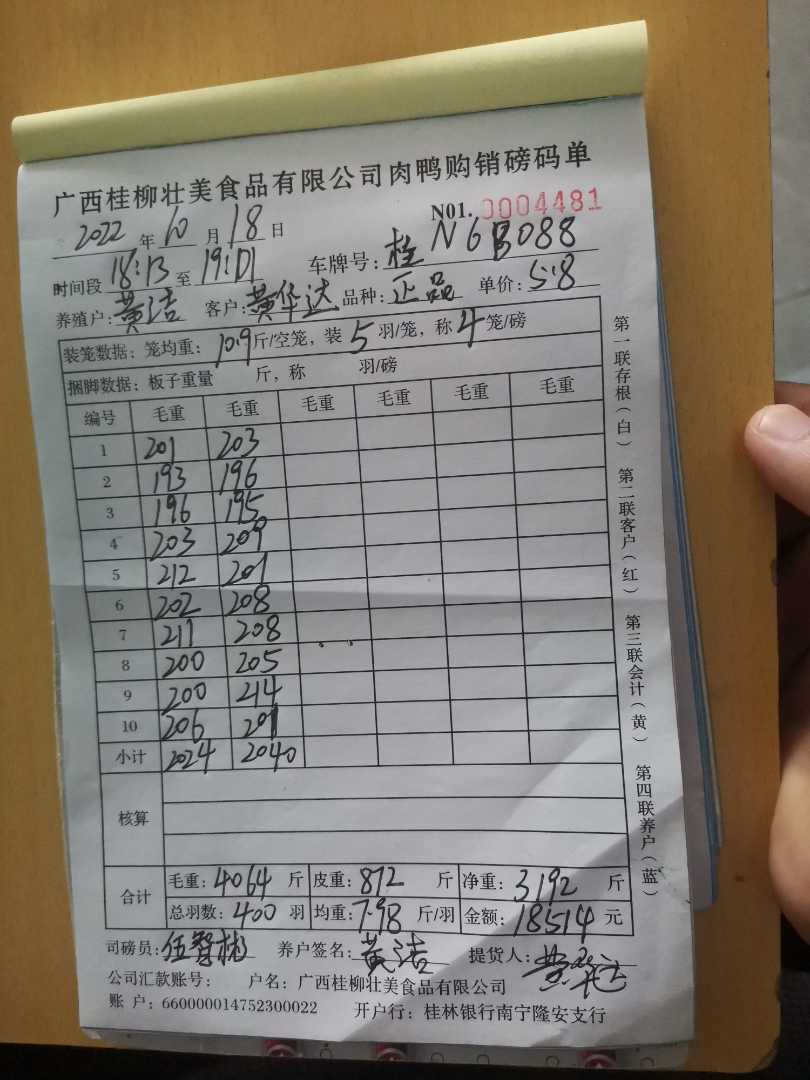 广西桂柳壮美食品有限公司肉鸭购销磅码单
N01. 0004481
2022 年 10 月 18 日
时间段 18:13 至 19:01 车牌号: 桂N6B088
养殖户: 黄洁 客户: 黄华达 品种: 正品 单价: 5.8
装笼数据: 笼均重: 10.9 斤/空笼, 装 5 羽/笼, 称 4 笼/磅
捆脚数据: 板子重量 斤, 称 羽/磅
编号 毛重 毛重 毛重 毛重 毛重 毛重
1 201 203
2 193 196
3 196 195
4 203 209
5 212 201
6 202 208
7 211 208
8 200 205
9 200 214
10 206 201
小计 2024 2040
核算
合计 毛重: 4064 斤 皮重: 872 斤 净重: 3192 斤
总羽数: 400 羽 均重: 7.98 斤/羽 金额: 18514 元
司磅员: 伍智彬 养户签名: 黄洁 提货人: 黄华达
公司汇款账号: 户名: 广西桂柳壮美食品有限公司
账 户: 660000014752300022 开户行: 桂林银行南宁隆安支行
第一联存根(白) 第二联客户(红) 第三联会计(黄) 第四联养户(蓝)